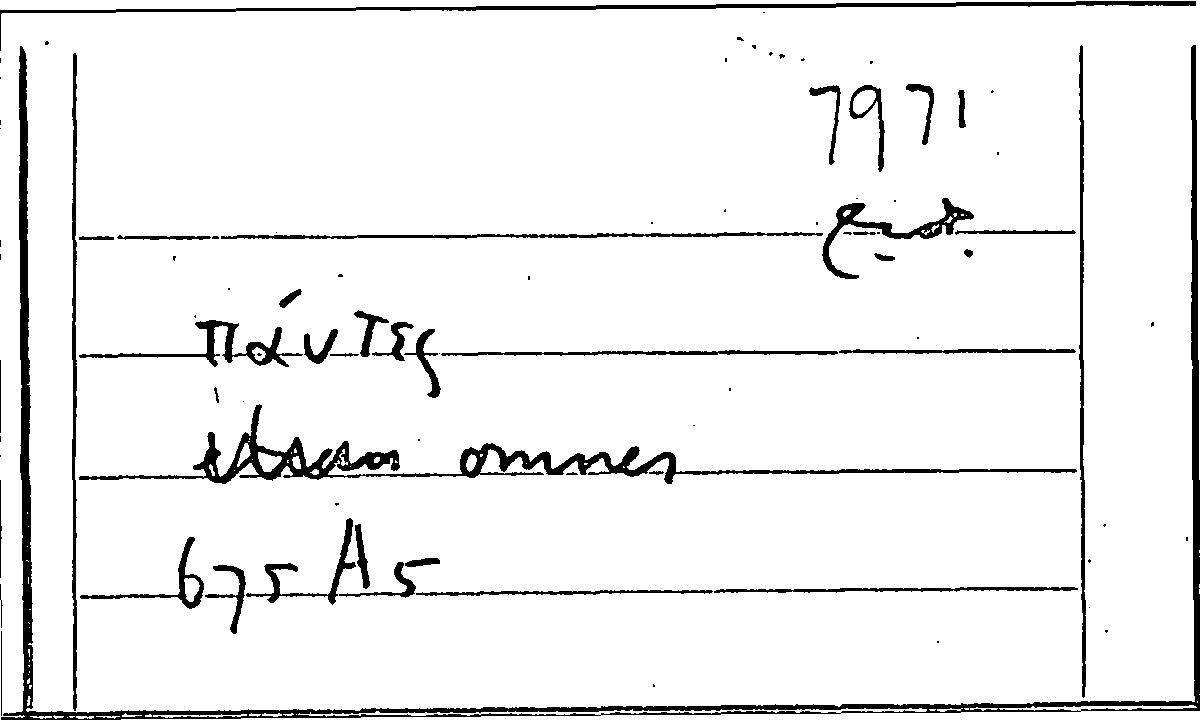 7971
πάντες
omnes
675 A5